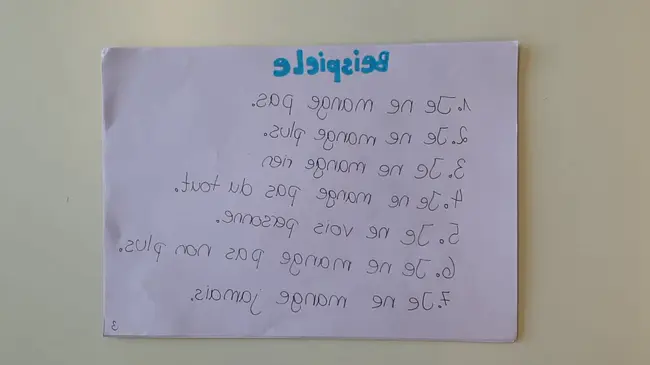 Beispiele
1. Je ne mange pas.
2. Je ne mange plus.
3. Je ne mange rien
4. Je ne mange pas du tout.
5. Je ne vois personne.
6. Je ne mange pas non plus.
7. Je ne mange jamais.
3